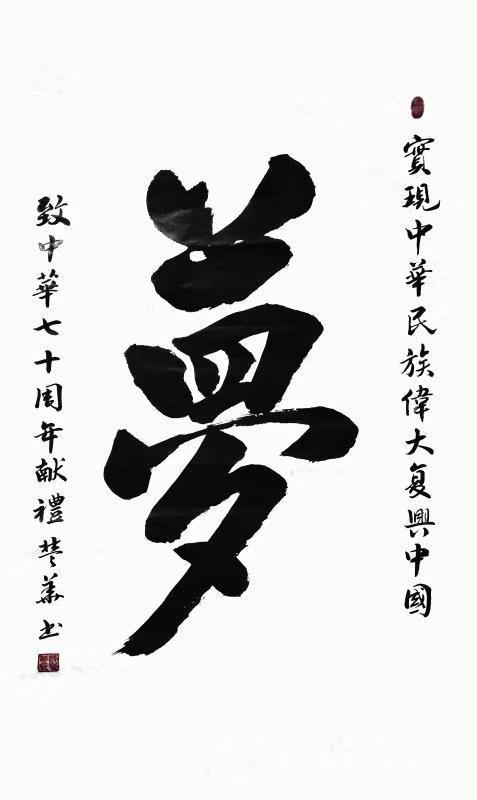 實現中華民族偉大复興中國
夢
致中華七十周年献禮 楚華书